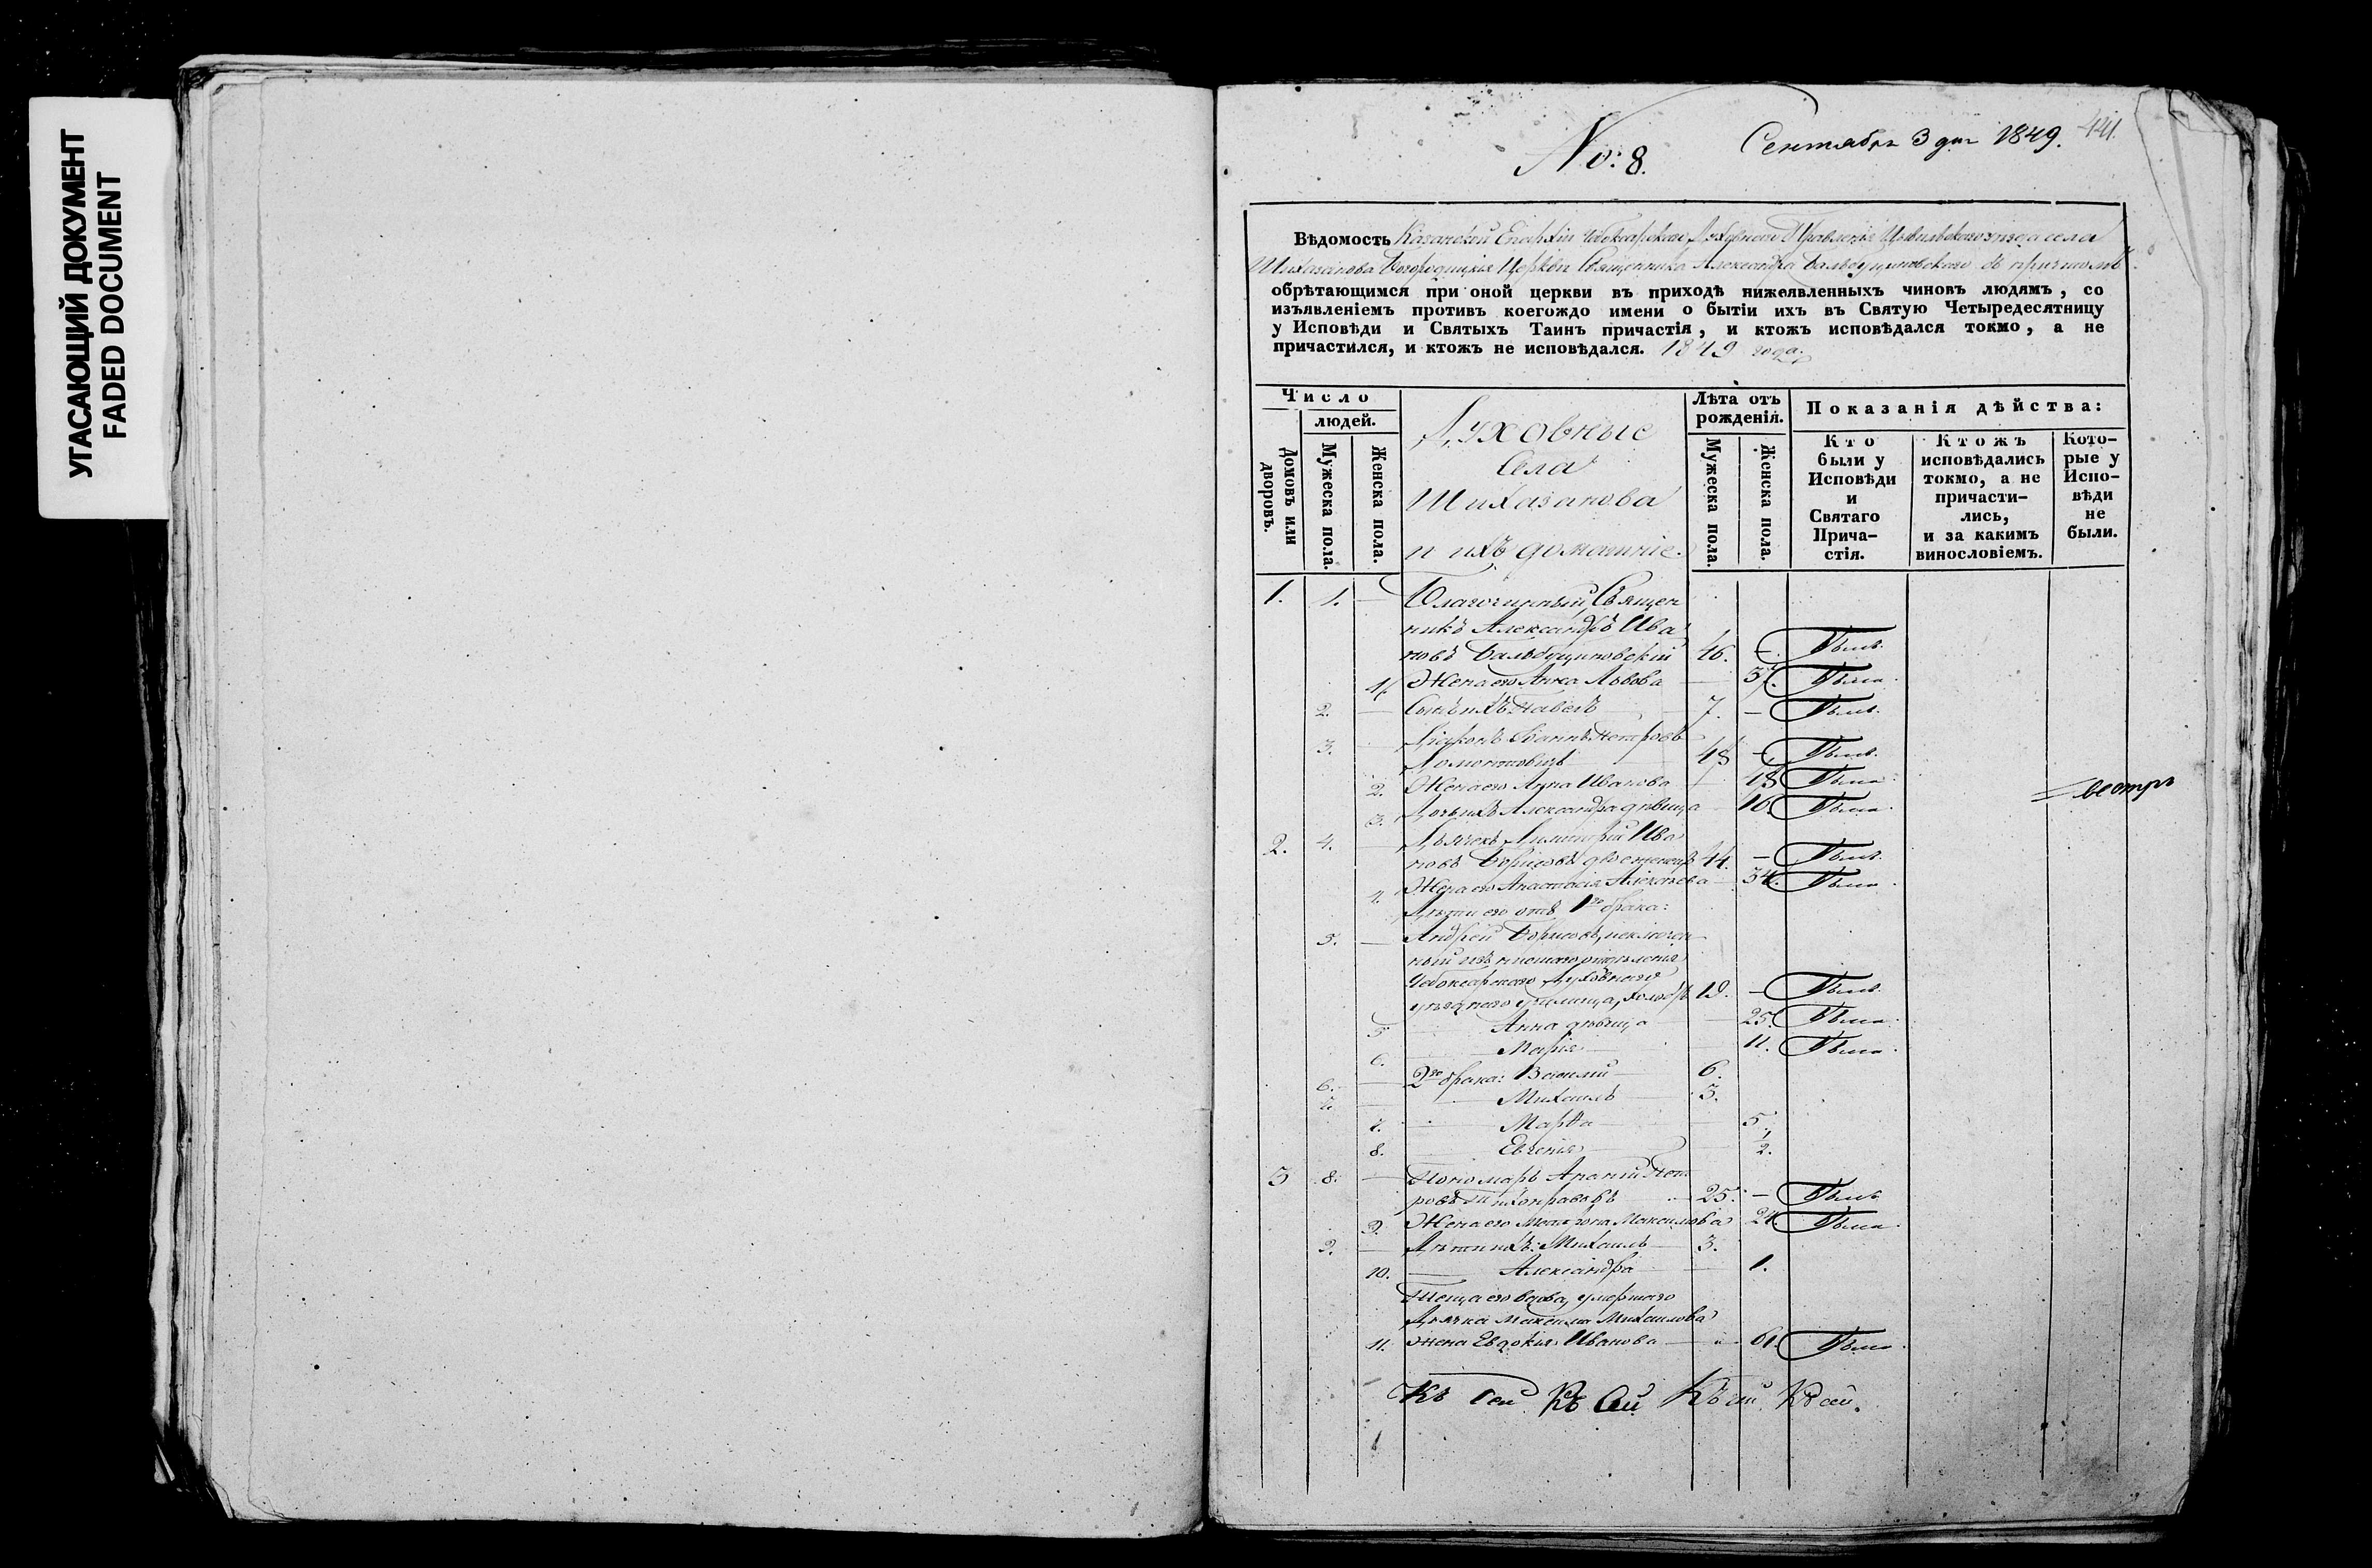 УГАСАЮЩИЙ ДОКУМЕНТ
FADED DOCUMENT
No: 8.
Сентября 3 дня 1849.
441.
Вѣдомость Казанской Епархіи Чебоксарскаго Духовнаго Правленія Цивильскаго уѣзда села
Шихазанова Богородицкія Церкви Священника Александра Бальбуциновскаго съ причтомъ
обрѣтающимся при оной церкви въ приходѣ нижеявленныхъ чиновъ людямъ, со
изъявленіемъ противъ коегождо имени о бытіи ихъ въ Святую Четыредесятницу
у Исповѣди и Святыхъ Таинъ причастія, и ктожъ исповѣдался токмо, а не
причастился, и ктожъ не исповѣдался. 1849 года.
Число
людей.
Домовъ или дворовъ.
Мужеска пола.
Женска пола.
Духовные
Села
Шихазанова
и ихъ домашніе.
Лѣта отъ
рожденія.
Мужеска пола.
Женска пола.
Показанія дѣйства:
Кто
были у
Исповѣди
и
Святаго
Прича-
стія.
Ктожъ
исповѣдались
токмо, а не
причасти-
лись,
и за какимъ
винословіемъ.
Кото-
рые у
Испо-
вѣди
не
были.
1. 1. — Благочинный, Священ
никъ Александръ Ива
новъ Бальбуциновскій 46. — Былъ.
1. Жена его Анна Львова — 37. Была.
2. — Сынъ ихъ Павелъ 7. — Былъ.
3. — Діаконъ Іоаннъ Петровъ
48 — Былъ.
2. Жена его Анна Иванова 48 Была.
3. Дочь ихъ Александра дѣвица — 16. Была.
2. 4. — Дьячекъ Димитрій Ива
новъ Борисовъ двоеженецъ 44. — Былъ.
4. Жена его Анастасія Алексѣева — 34. Была.
Дѣти его отъ 1го брака:
5. — Андрей Борисовъ, исключен
ный изъ низшаго отдѣленія
Чебоксарскаго Духовнаго
уѣзднаго училища, холостъ 19. — Былъ.
5 Анна дѣвица — 25. Была.
6. Марія — 11. Была.
6. — 2го брака: Василій 6.
7. — Михаилъ 3.
7. Марѳа — 5.
8. Евгенія — 1/2.
3 8. — Пономарь Ананій Пет
ровъ 25. — Былъ
9. Жена его Максимова 24 Была.
9. — Дѣти ихъ: Михаилъ 3.
10. Александра — 1.
Теща его вдова, умершаго
Дьячка Максима Михаилова
11. жена Евдокія Иванова — 61. Была.